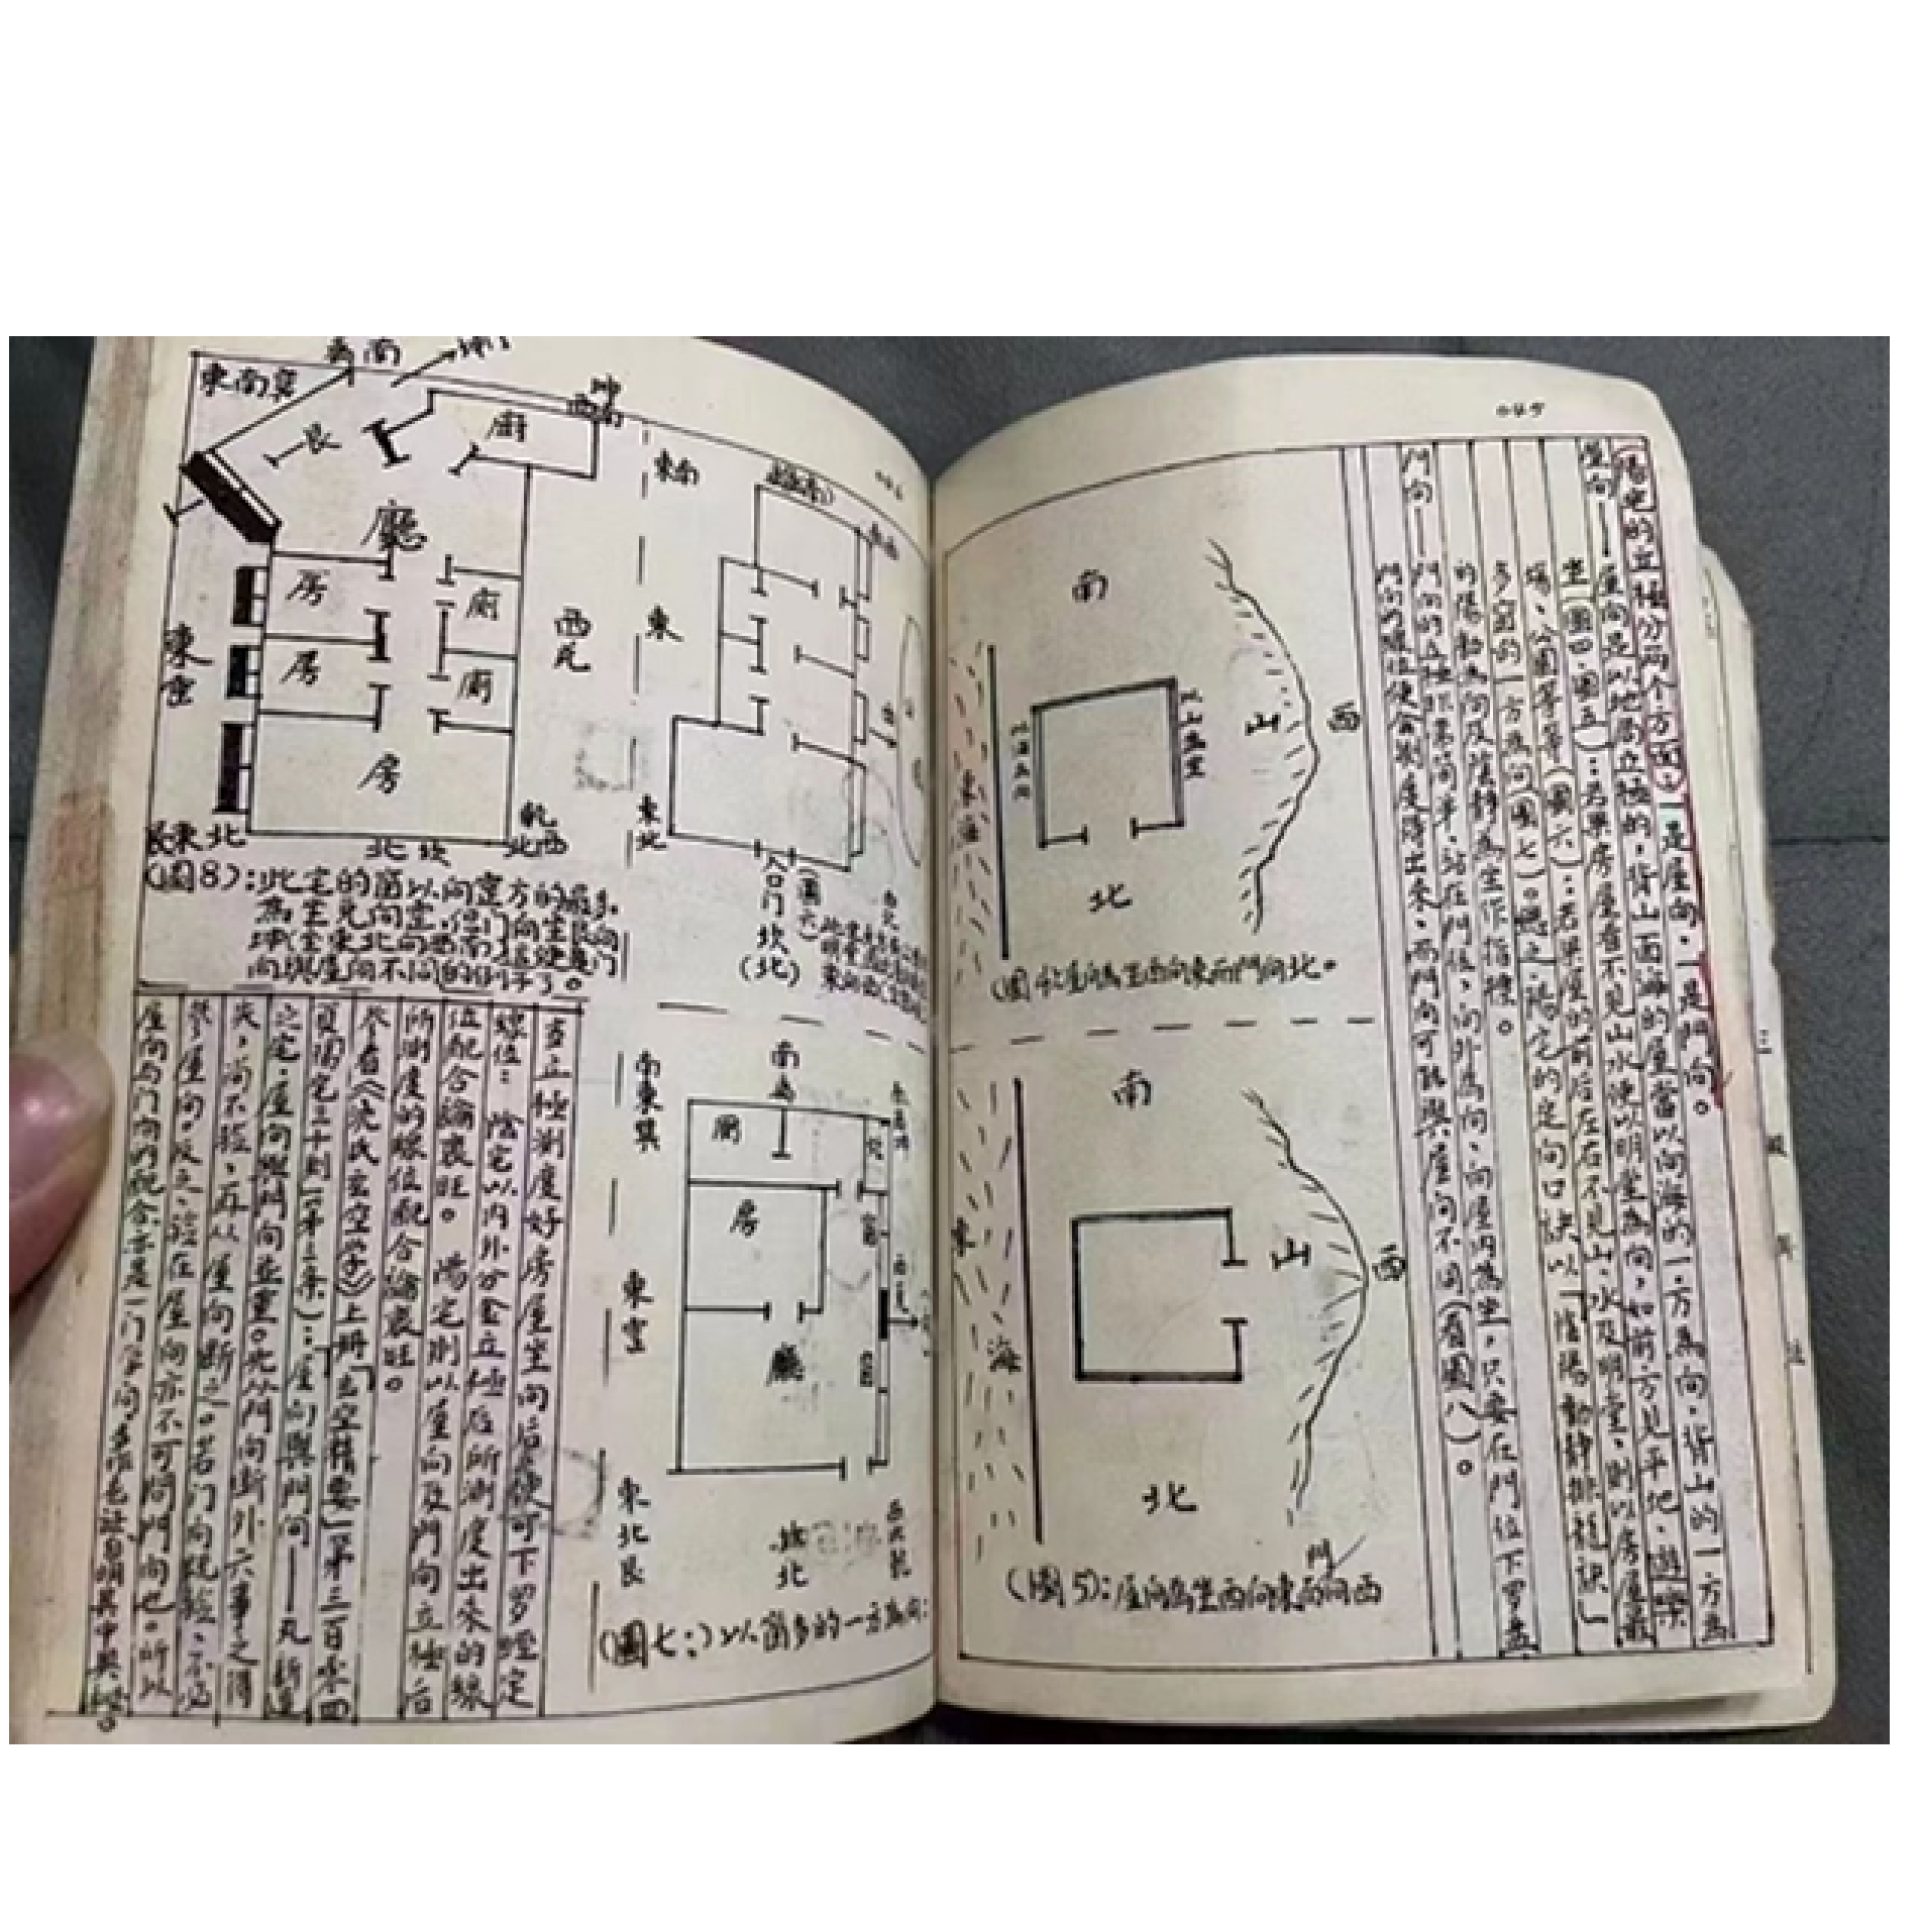 045
陽宅的立極分两个方面：一是屋向，一是門向。
屋向——屋向是以地局立極的，背山面海的屋當以向海的一方為向，背山的一方為
坐（圖四、圖五）：若果房屋看不見山水便以明堂為向，如前方見平地、遊樂
場、公園等等（圖六）：若果屋的前后左右不見山、水及明堂，則以房屋最
多窗的一方為向（圖七）。總之，陽宅的定向口訣以「陰陽動靜排龍訣」
的陽動為向及陰靜為坐作指標。
門向——門向的立極非常简单，站在門位，向外為向，向屋内為坐，只要在門位下罗盘
門向的線位便會測度得出來，而門向可能與屋向不同（看圖八）。
南
西
山
以山為坐
以海為向
東海
北
（圖4）：屋向為坐西向東而門向北。
南
西
山
東
海
北
（圖5）：屋向為坐西向東而門向西
三
東南
東
東北
入口门
坎
（北）
（圖六）
南
東
東北艮
廚
房
廳
坎
北
（圖七：）以窗多的一方為向：
東南巽
坤
西南
艮
廚
廳
房
廁
房
廁
房
東
西兑
艮東北
北坎
乾
北西
（圖8）：此宅的窗以向震方的最多，
為坐兑向震，但门向坐艮向
坤（坐東北向西南）這便是门
向與屋向不同的例子了。
當立極測度好房屋坐向后，便可下罗經定
線位：陰宅以内外分金立極后所測度出來的線
位配合論衰旺。陽宅則以屋向及門向立極后
所測度的線位配合論衰旺。
參看《沈氏玄空学》上册「玄空精要」第三百零四
頁陽宅三十則（第三条）：「屋向與門向——凡新造
之宅，屋向與門向並重。先从門向断外六事之得
失，尚不驗，再从屋向断之。若门向既驗，不必
參屋向，反之，驗在屋向亦不可問門向也。所以
屋向与门向的配合亦是一门学问